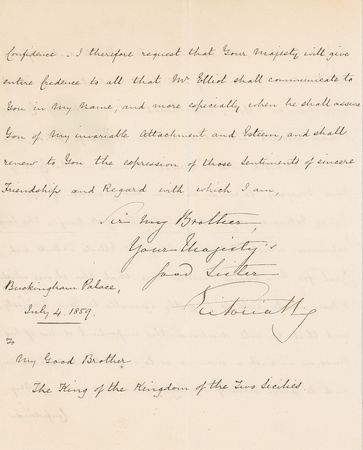 Confidence. I therefore request that Your Majesty will give
entire Credence to all that Mr. Elliot shall communicate to
You in My Name, and more especially when he shall assure
You of My invariable Attachment and Esteem, and shall
renew to You the expression of those Sentiments of sincere
Friendship and Regard with which I am,
Sir My Brother,
Your Majesty's
Good Sister
Victoria R
Buckingham Palace,
July 4 1859.
To
My Good Brother
The King of the Kingdom of the Two Sicilies.